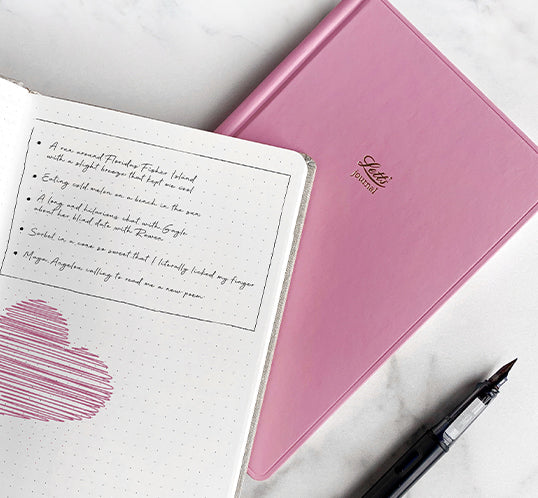 A run around Floridas Fisher Island
with a slight breeze that kept me cool
Eating cold melon on a beach in the sun
A long and hilarious chat with Gayle
about her blind date with Raven
Sorbet in a cone so sweet that I literally licked my finger
Maya Angelou calling to read me a new poem
Letts
journal